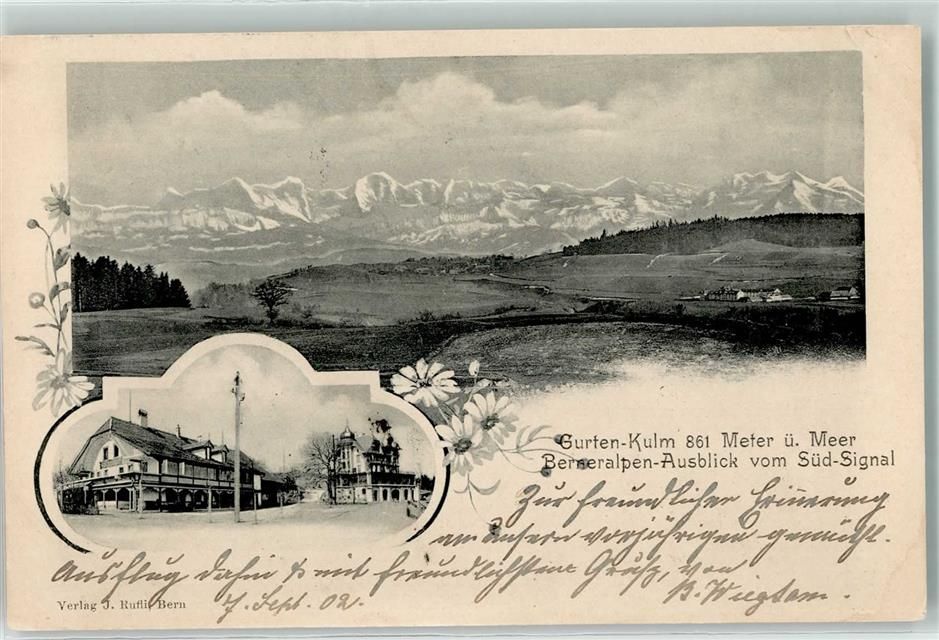 Gurten-Kulm 861 Meter ü. Meer
Berneralpen-Ausblick vom Süd-Signal
Zur freundlicher Erinnerung
an unsern vorjährigen gemütl.
Ausflug dahin & mit freundlichstem Gruß, von
7. Sept. 02.
Verlag J. Rufli, Bern